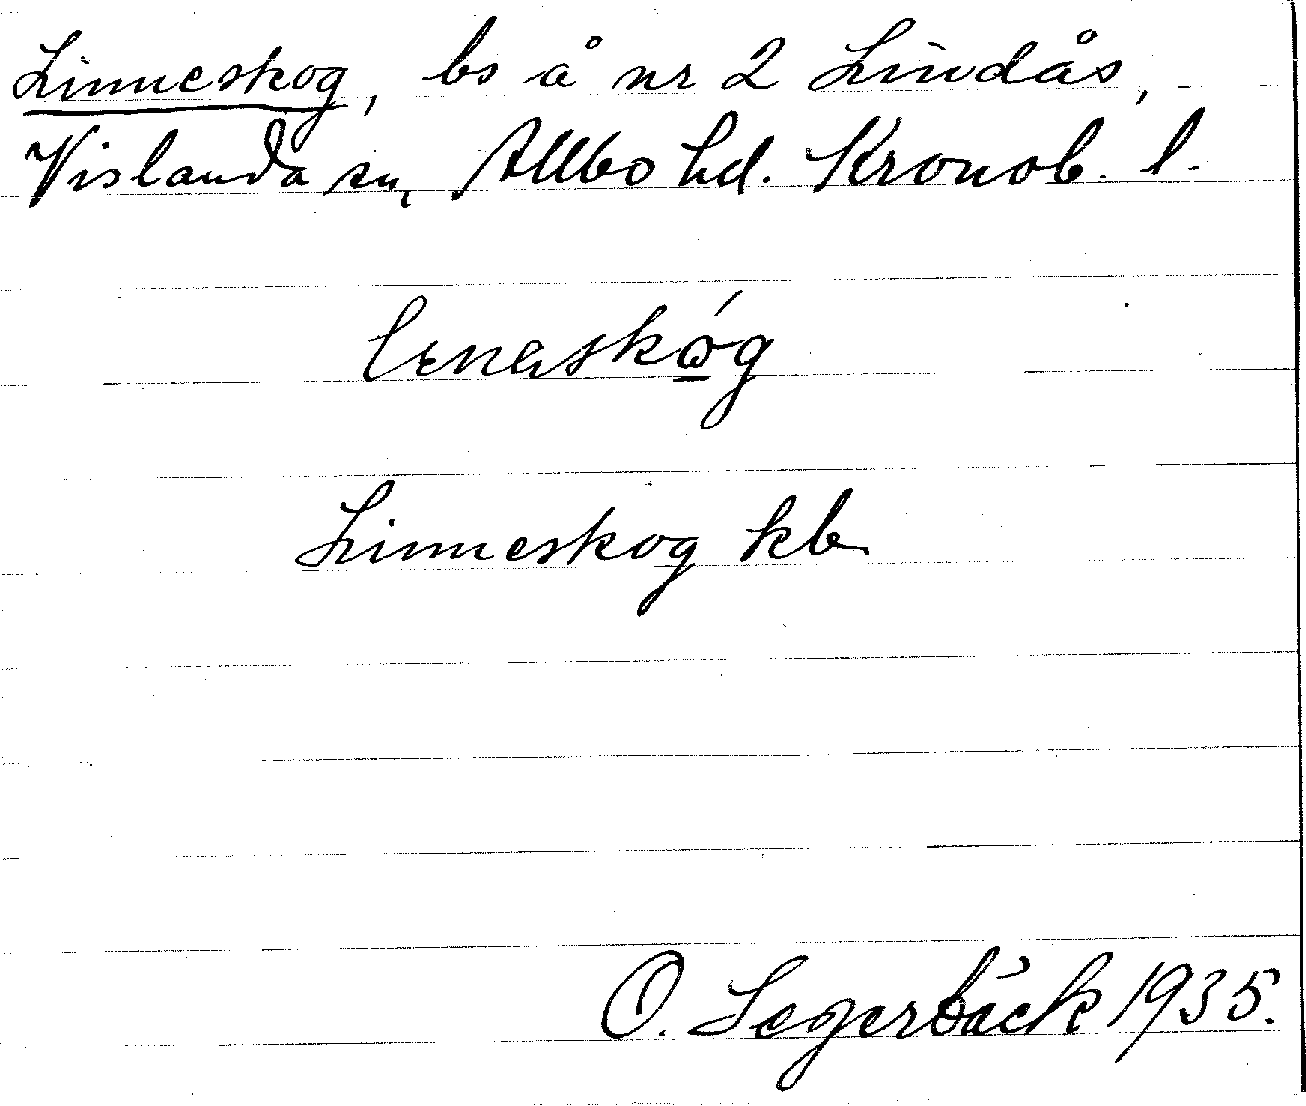 Linneskog, bs å nr 2 Lindås,
Vislanda sn, Allbo hd. Kronob. l.
Linneskog kb
O. Segerbäck 1935.